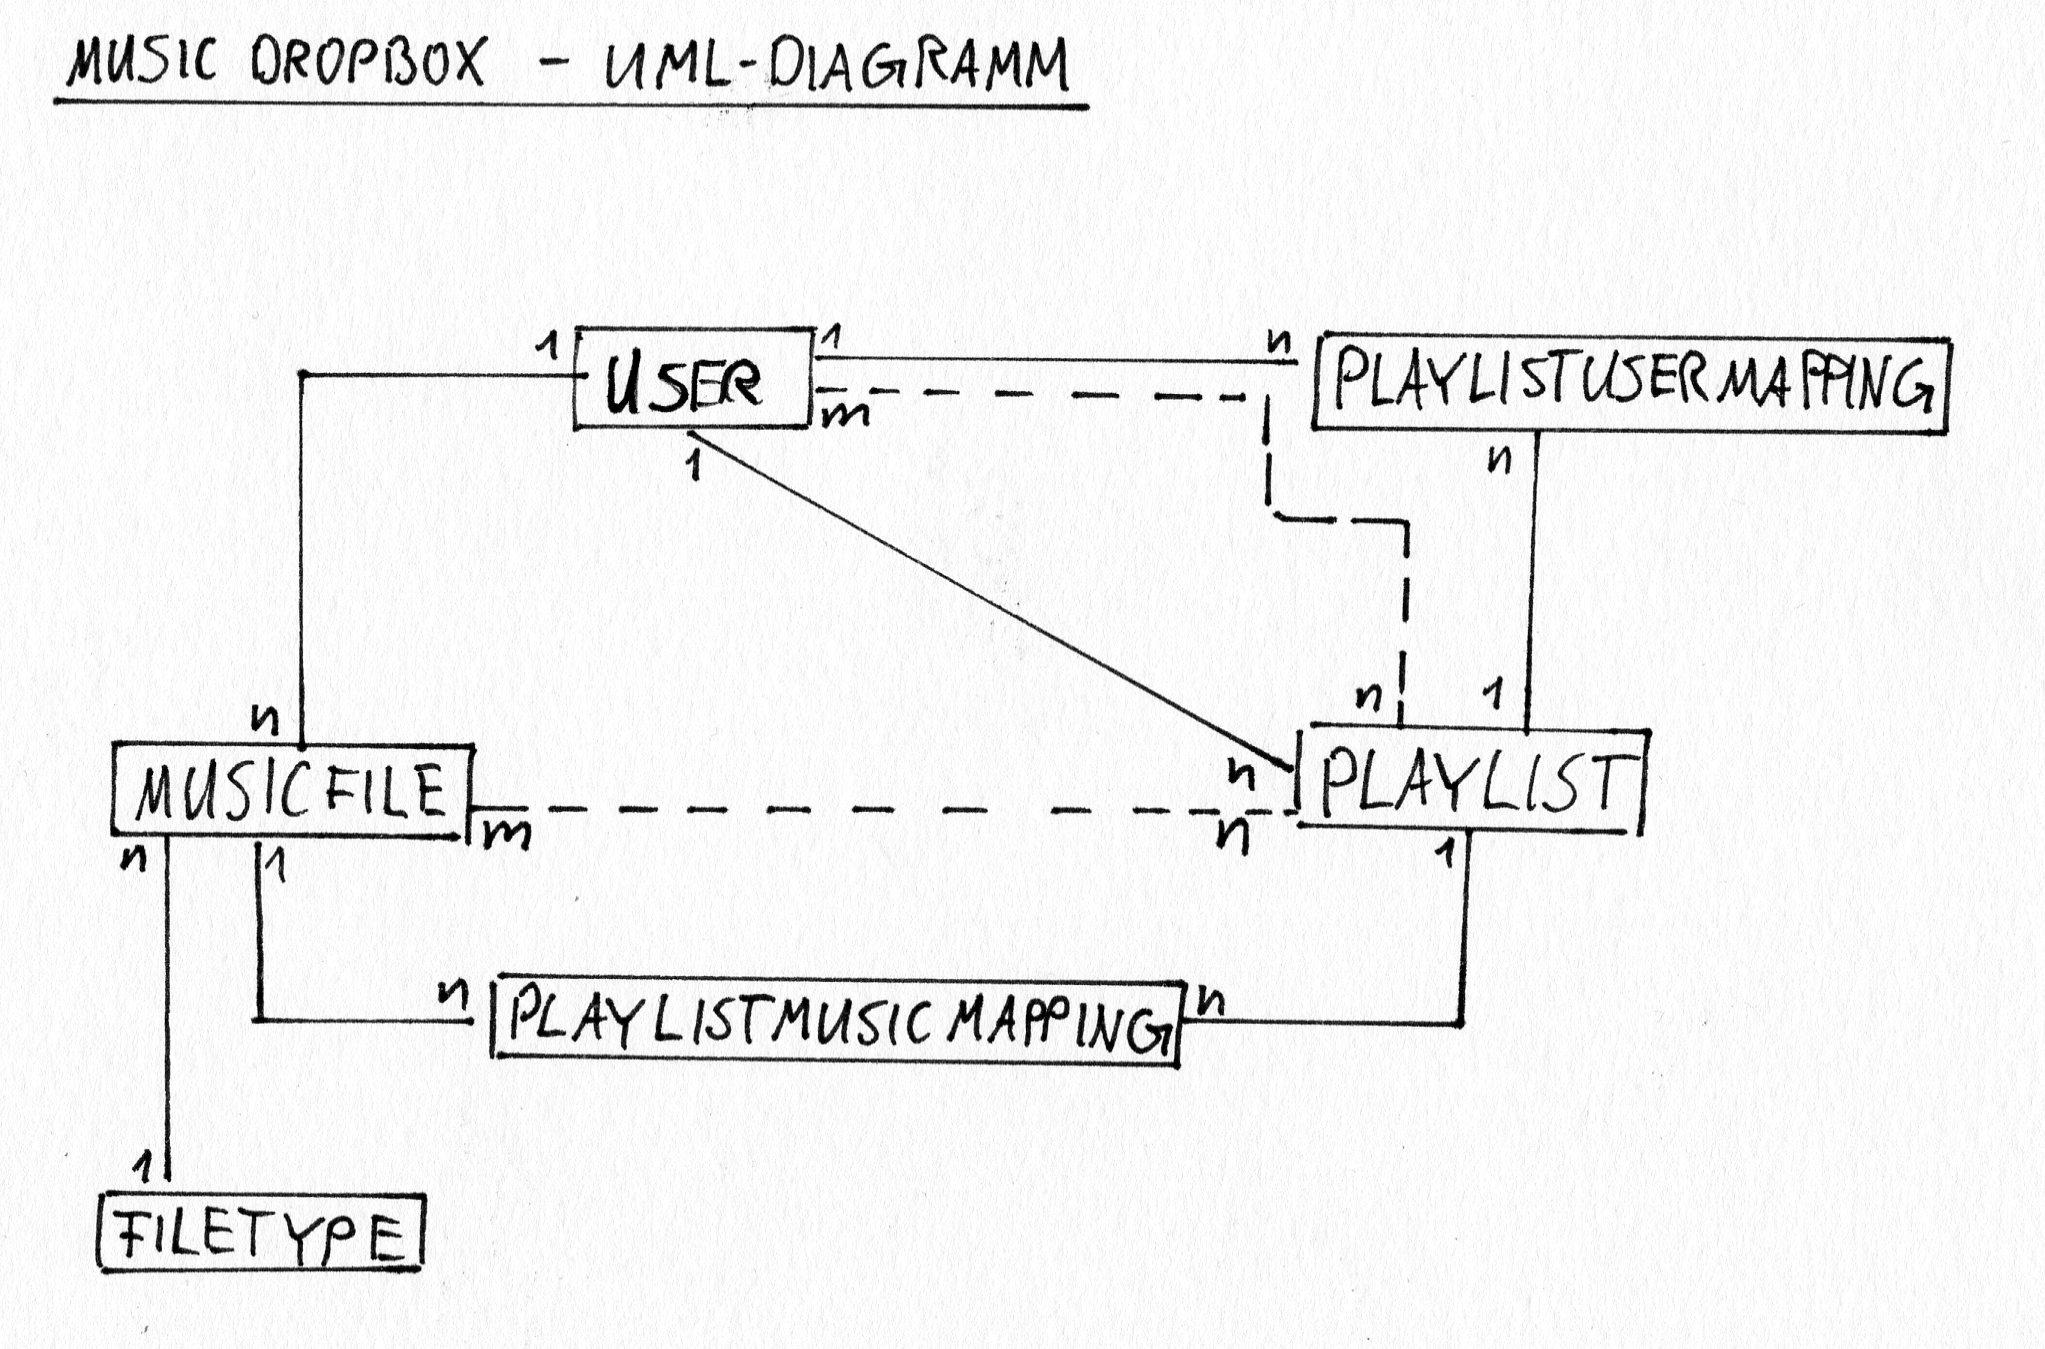 MUSIC DROPBOX - UML-DIAGRAMM
1 USER 1 n PLAYLISTUSERMAPPING
m
1 n
n n 1
MUSICFILE n PLAYLIST
m n
n 1 1
n PLAYLISTMUSICMAPPING n
1
FILETYPE